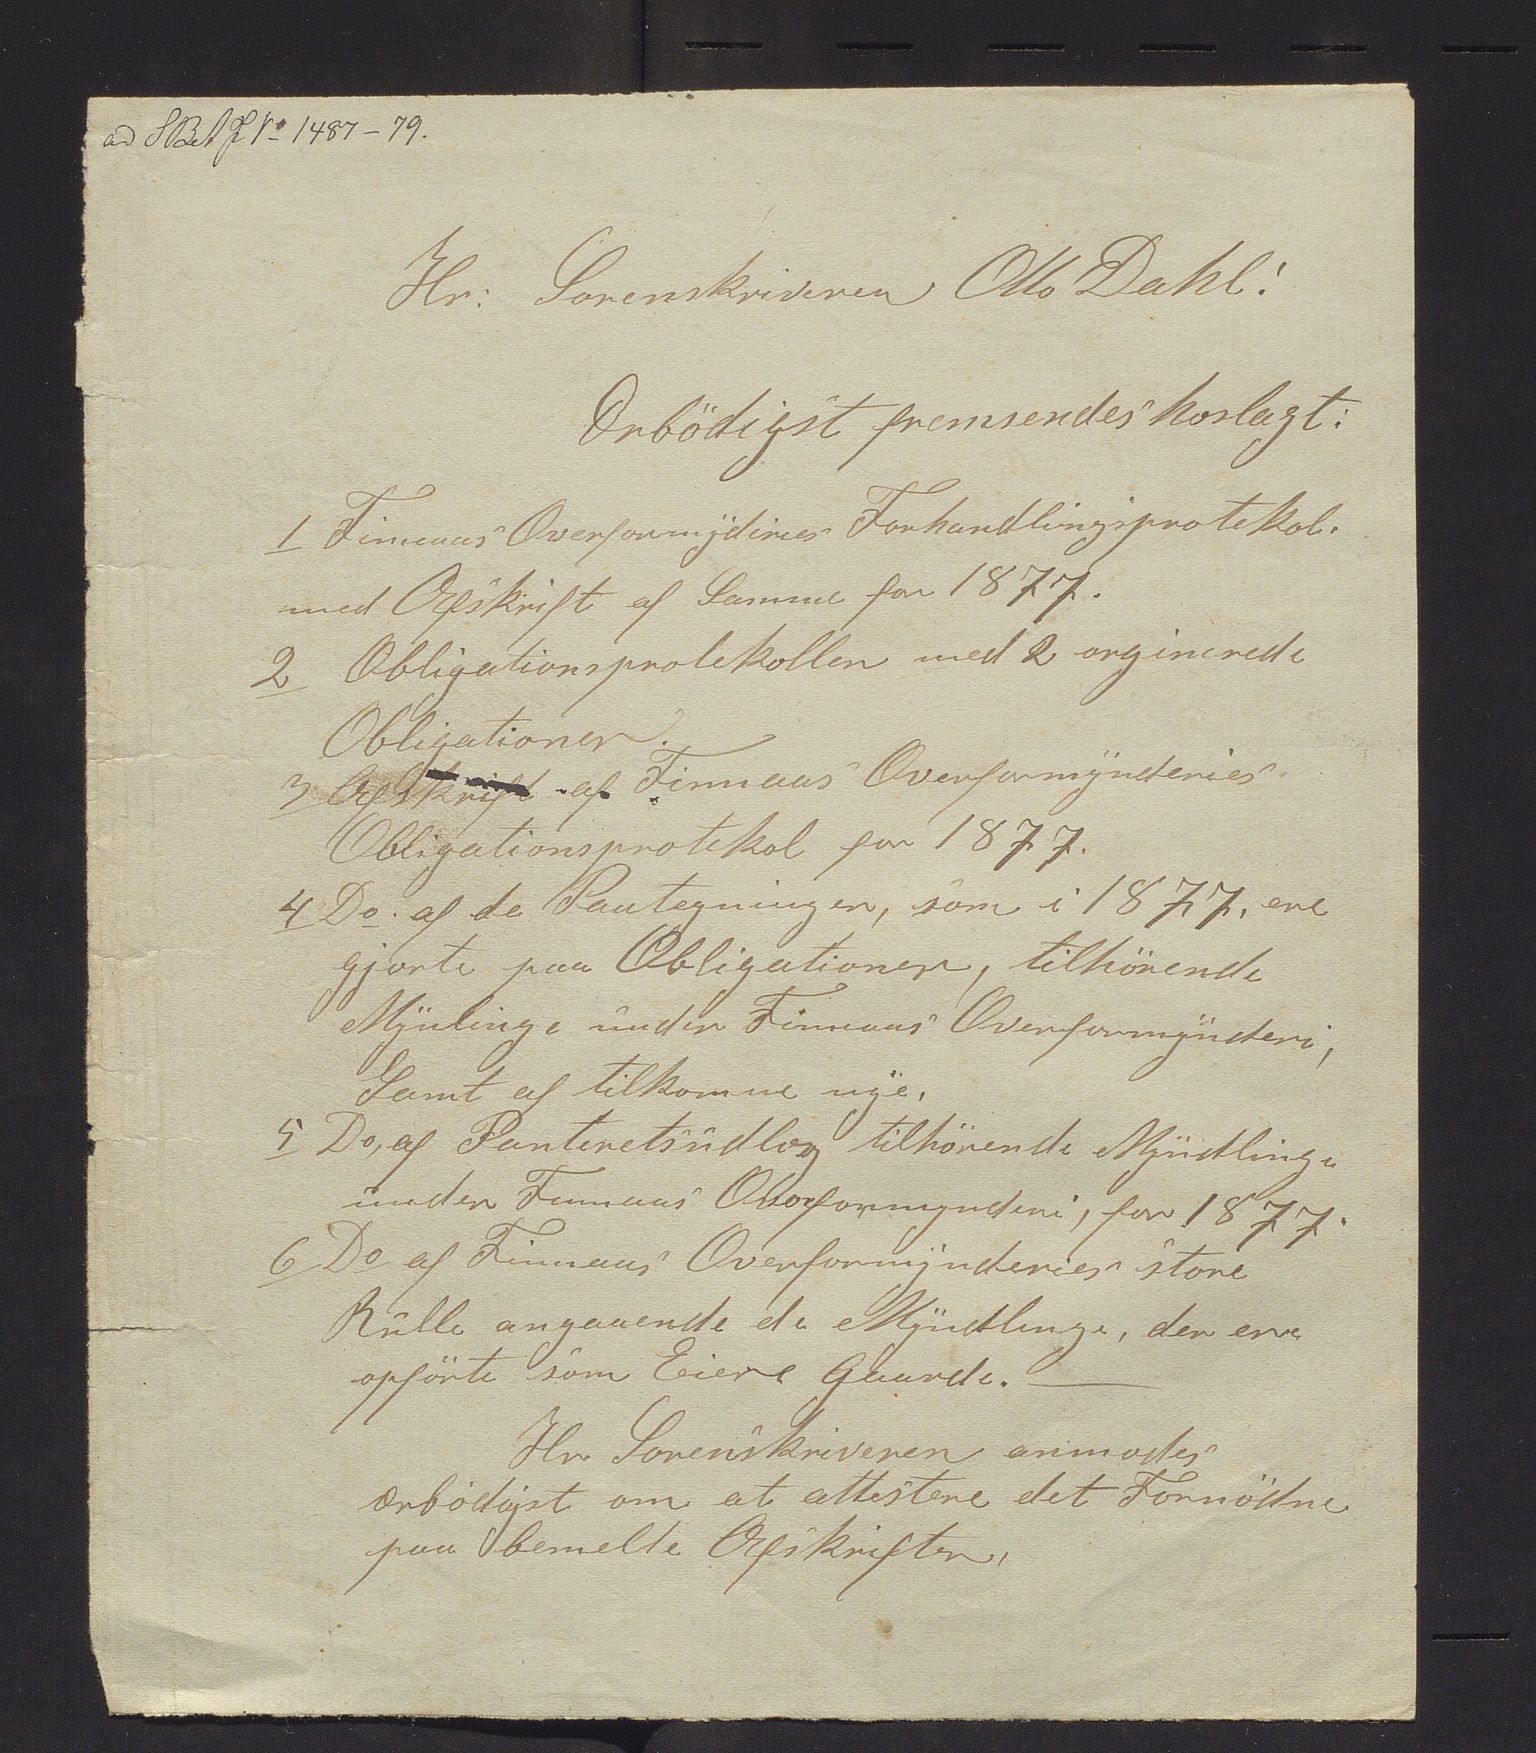 ad 1487-79.
Hr: Sorenskriveren Otto Dahl!
Örbödigst fremsendes hoslagt:
1 Finnaas Overformÿdiries Forhandlingsprotekol.
med Afskrift af Samme for 1877.
2 Obligationsprotekollen med 2 orginerede
Obligationer.
3 Afskrift af Finnaas Overformÿnderies
Obligationsprotekol for 1877.
4 Do. af de Pautegninger, som i 1877, ere
gjorte paa Obligationer, tilhörende
Mÿnlinge under Finnaas Overformÿnderi,
Samt af tilkomne nÿe.
5 Do, af Panteretsudlæg tilhörende Mÿndlinge
under Finnaas Overformynderi, for 1877.
6 Do af Finnaas Overformÿnderies store
Rulle angaaende de Mÿndlinge, der ere
opförte som Eiere Gaarde.
Hr Sorenskriveren anmodes
ærbödigst om at attestere det Fornödne
paa bemelte Afskrifter,